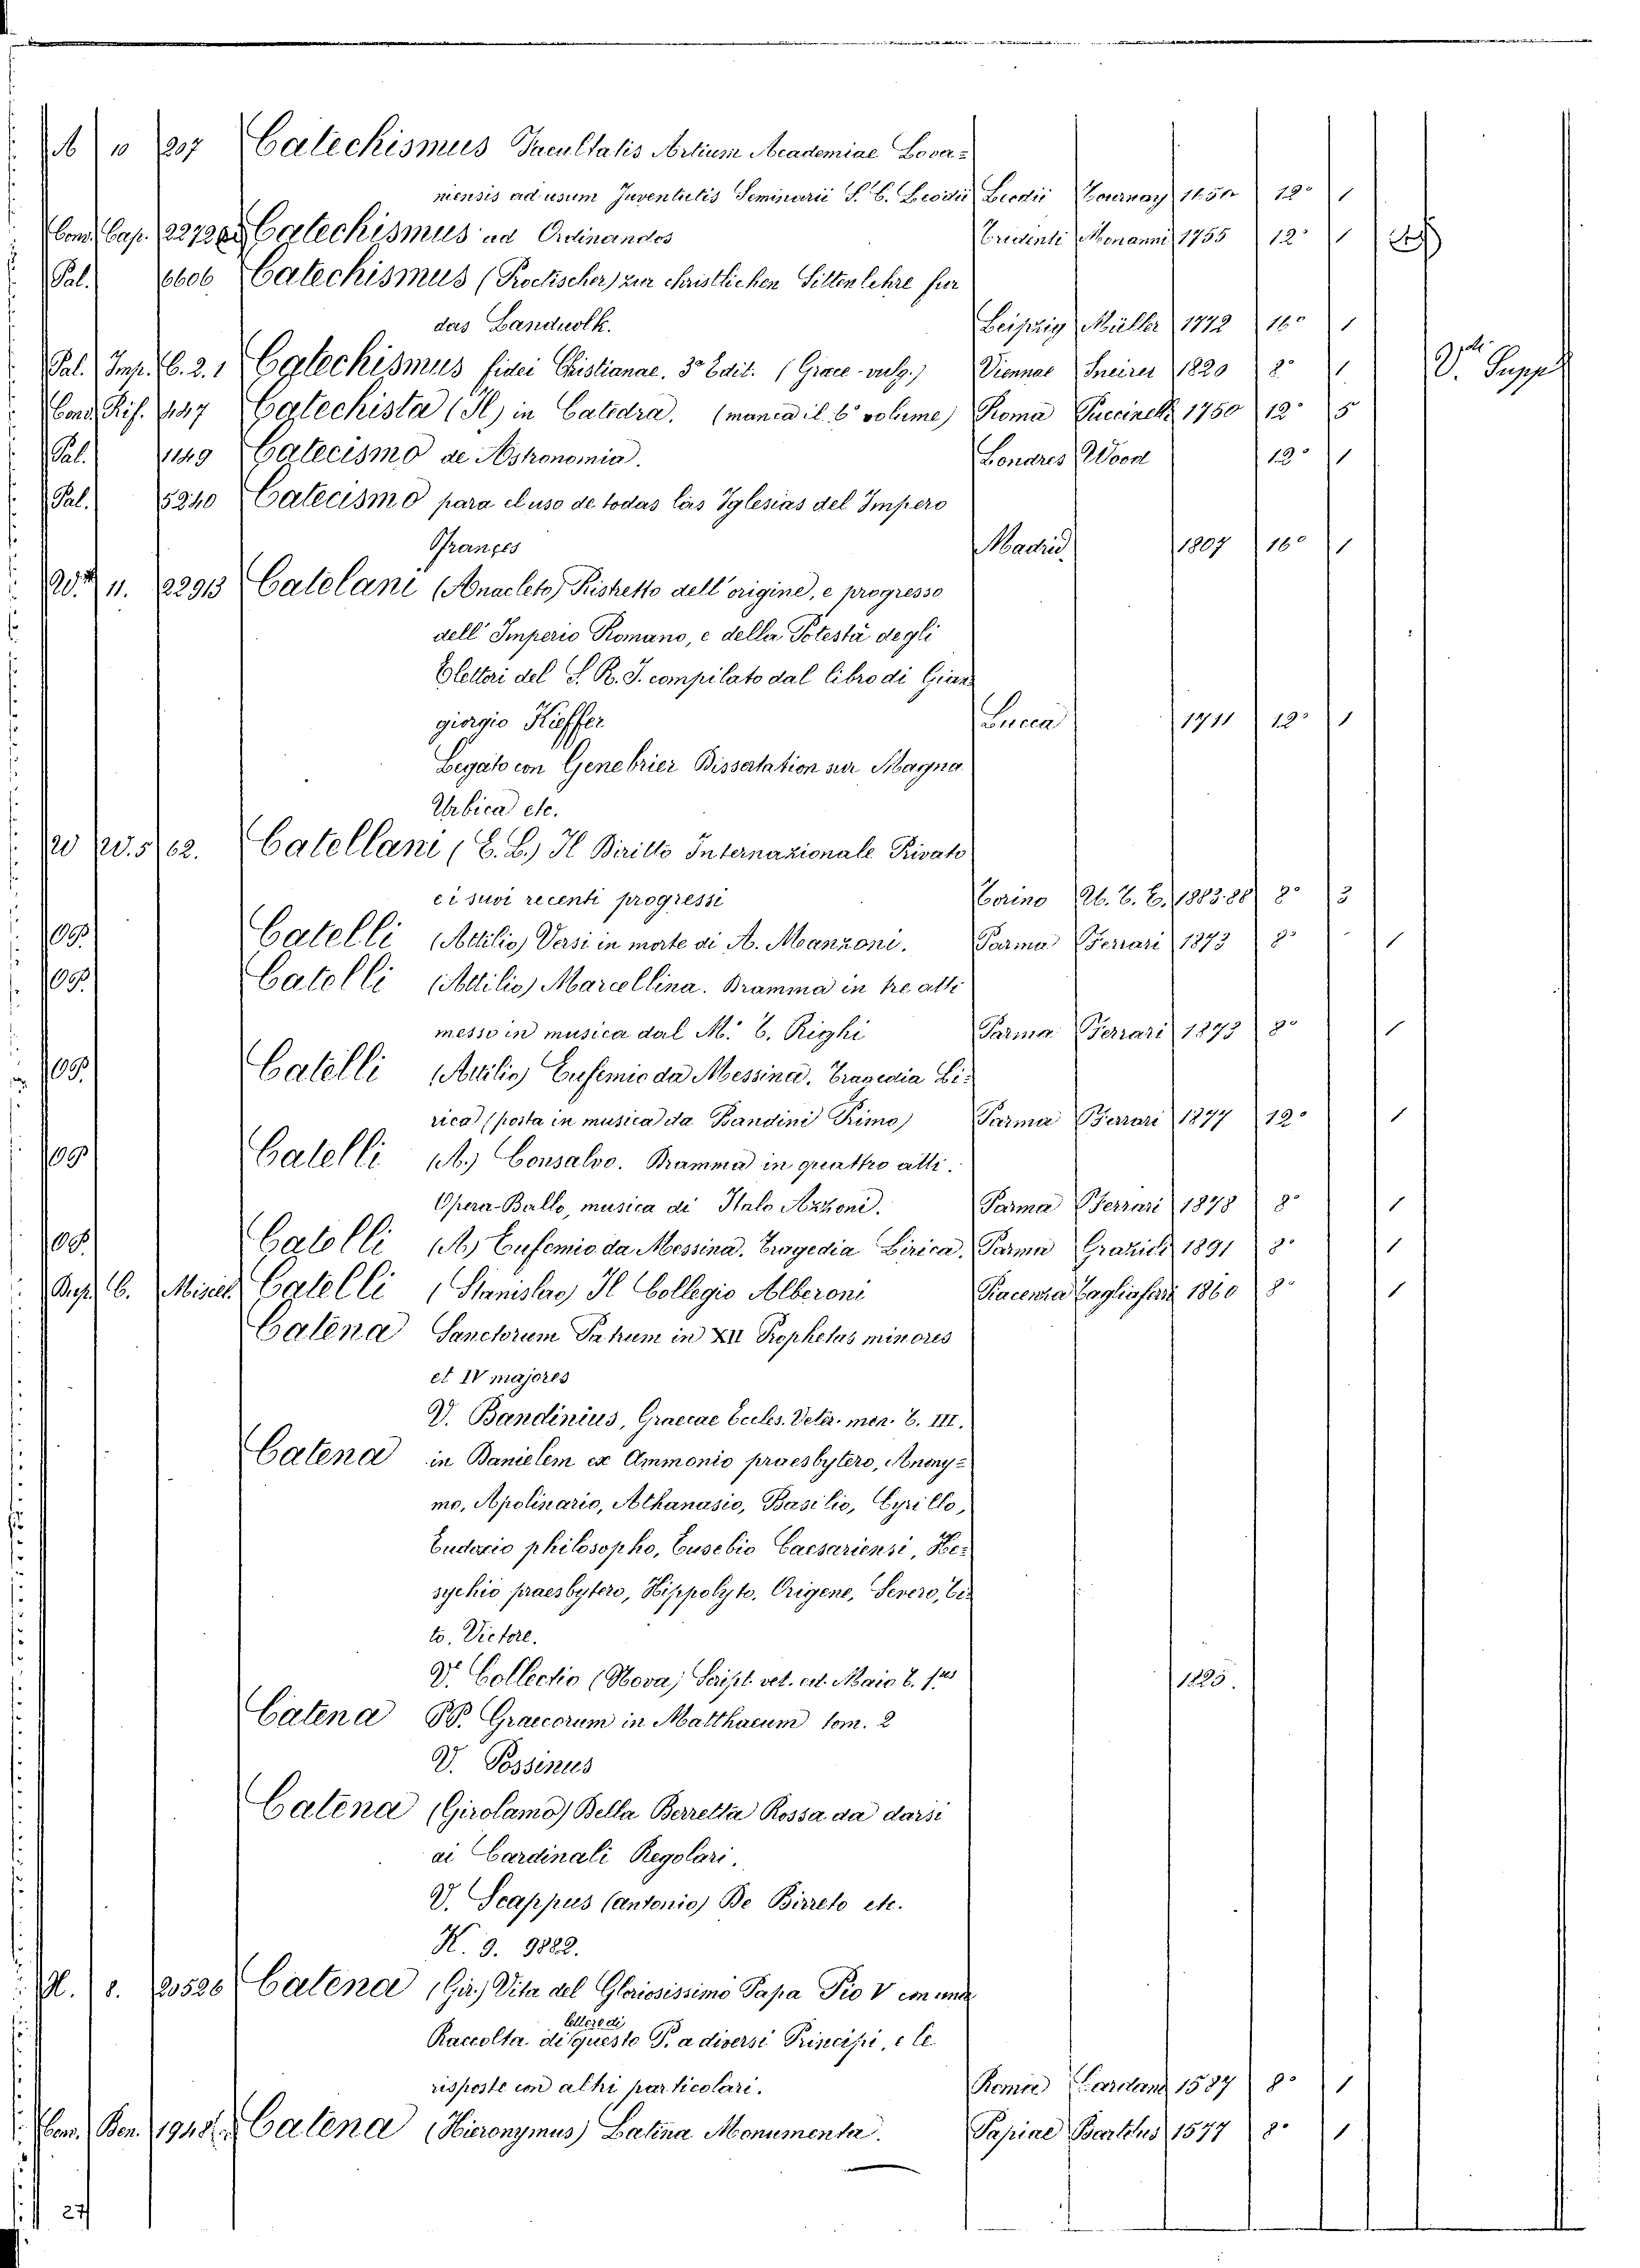 A 10 207 Catechismus Facultatis Artium Academiae Lova=
niensis ad usum Juventutis Seminarii S. C. Leodii Leodii Tournay 12° 1
Cons. Cap. 22728 Catechismus ad Ordinandos Tridenti Monauni 1755 12° 1
Pal. 6606 Catechismus (Poetischer) zur christlichen Sittenlehre fur
das Landvolk. Leipzig Müller 1772 16° 1
Pal. Imp. C. 2. 1 Catechismus fidei Christianae. 3ª Edit. (Graec-vulg.) Viennae Sneirer 1820 8° 1 V. Suppl
Cons. Rif. 447 Catechista (Il) in Catedra. (manca il 6° volume) Roma Puccinelli 1750 12° 5
Pal. 1149 Catecismo de Astronomia. Londres Wood 12° 1
Pal. 5240 Catecismo para el uso de todas las Yglesias del Impero
Françes Madrid 1807 16° 1
11. 22913 Catelani (Anacleto) Ristretto dell'origine, e progresso
dell'Imperio Romano, e della Potestà degli
Elettori del S. R. I. compilato dal libro di Gian
giorgio Kieffer Lucca 1711 12° 1
Legato con Genebrier Dissertation sur Magna
Urbica etc.
W W. 5 62. Catellani (E. L.) Il Diritto Internazionale Privato
e i suoi recenti progressi Torino U. T. E. 1883.88 8° 3
Catelli (Attilio) Versi in morte di A. Manzoni. Parma Ferrari 1873 8° 1
Catelli (Attilio) Marcellina. Dramma in tre atti
messo in musica dal M.° C. Righi Parma Ferrari 1873 8° 1
Catelli (Attilio) Eufemio da Messina. Tragedia Li=
rica (posta in musica da Bandini Primo) Parma Ferrari 1877 12° 1
Catelli (A.) Consalvo. Dramma in quattro atti.
Opera-Ballo, musica di Italo Azzoni. Parma Ferrari 1878 8° 1
Catelli (A.) Eufemio da Messina. Tragedia Lirica. Parma Grazioli 1891 8° 1
C. Miscel. Catelli (Stanislao) Il Collegio Alberoni Piacenza Tagliaferri 1860 8° 1
Catena Sanctorum Patrum in XII Prophetas minores
et IV majores
V. Bandinius, Graecae Eccles. Veter. mon. T. III.
Catena in Danielem ex Ammonio praesbytero, Anony=
mo, Apolinario, Athanasio, Basilio, Cyrillo,
Eudoxio philosopho, Eusebio Caesariensi, He=
sychio praesbytero, Hippolyto, Origene, Severo, Ti=
to, Victore.
V. Collectio (Nova) Script. vet. ed. Maio T. 1us 1825.
Catena PP. Graecorum in Matthaeum tom. 2
V. Possinus
Catena (Girolamo) Della Berretta Rossa da darsi
ai Cardinali Regolari.
V. Scappus (Antonio) De Birreto etc.
K. 9. 9882.
8. 20526 Catena (Gir.) Vita del Gloriosissimo Papa Pio V con una
lettere di
Raccolta di questo P. a diversi Principi, e le
risposte con altri particolari. Roma 1587 8° 1
Con. Ben. 1948 Catena (Hieronymus) Latina Monumenta. Papiae Bartolus 1577 8° 1
27